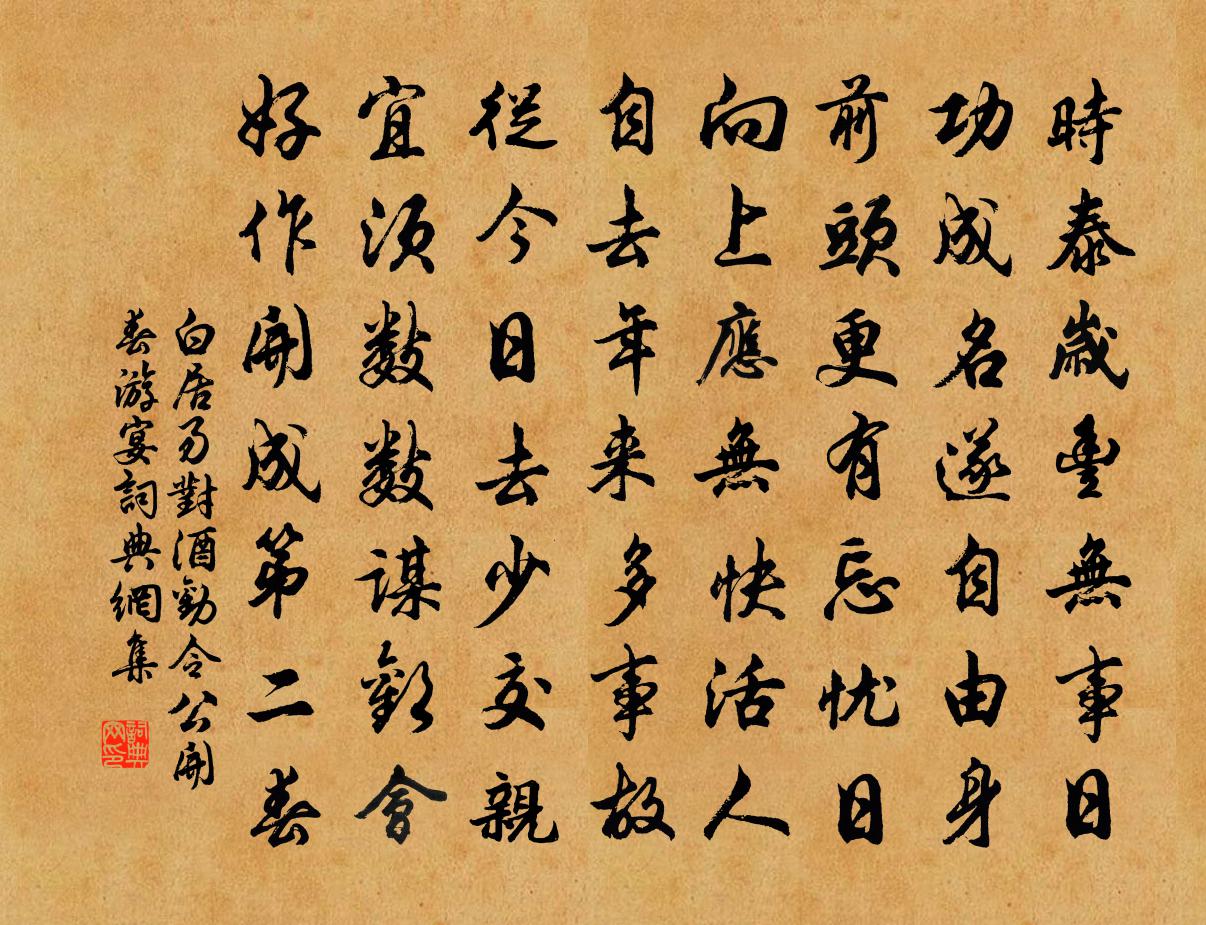 時泰歲豐無事日
功成名遂自由身
前頭更有忘忧日
向上應無快活人
自去年来多事故
從今日去少交親
宜須數數謀歡會
好作開成第二春
白居易對酒勸令公開
春游宴詞典網集
詞典
网印